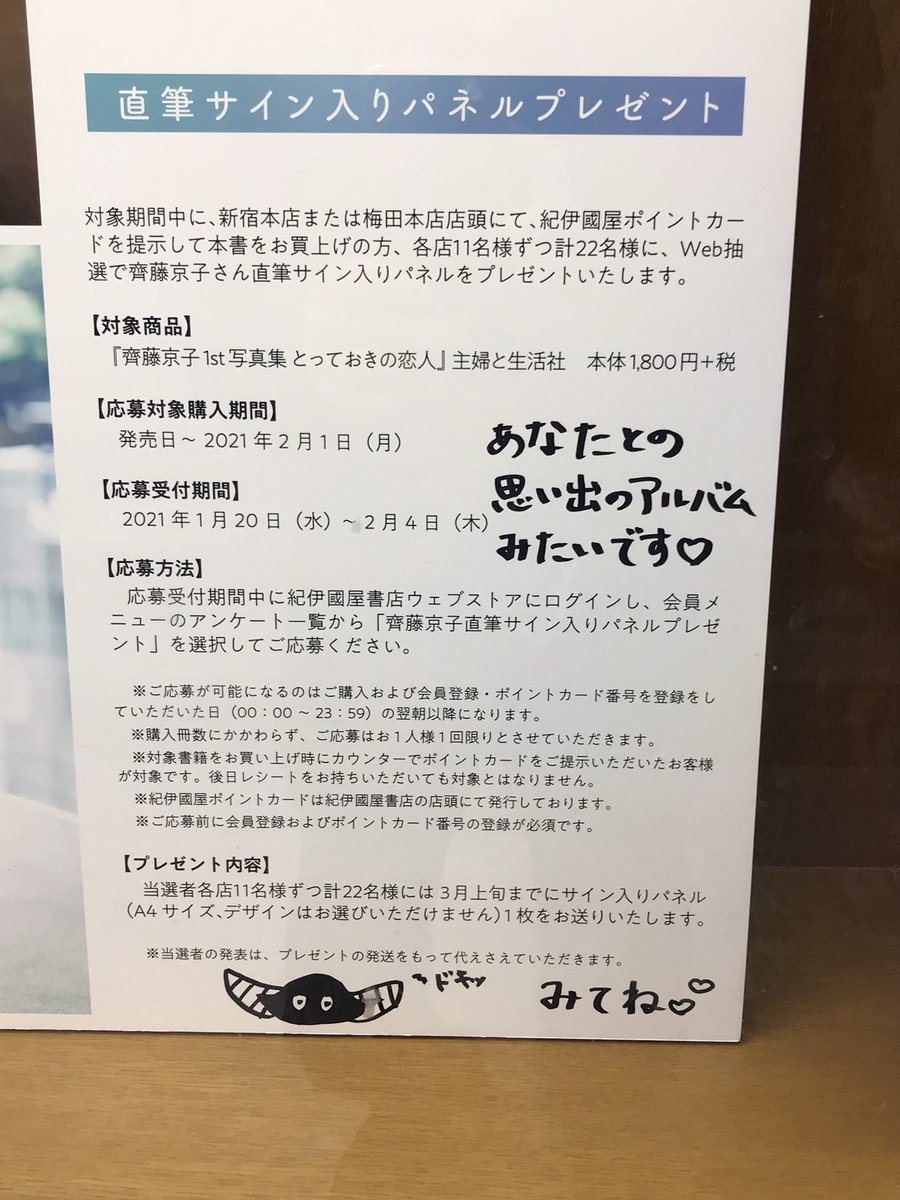 直筆サイン入りパネルプレゼント
対象期間中に、新宿本店または梅田本店店頭にて、紀伊國屋ポイントカー
ドを提示して本書をお買上げの方、各店11名様ずつ計22名様に、Web抽
選で齊藤京子さん直筆サイン入りパネルをプレゼントいたします。
【対象商品】
『齊藤京子1st写真集 とっておきの恋人』主婦と生活社　本体1,800円+税
【応募対象購入期間】
発売日～2021年2月1日（月）
あなたとの
思い出のアルバム
みたいです♡
【応募受付期間】
2021年1月20日（水）～2月4日（木）
【応募方法】
応募受付期間中に紀伊國屋書店ウェブストアにログインし、会員メ
ニューのアンケート一覧から「齊藤京子直筆サイン入りパネルプレゼ
ント」を選択してご応募ください。
※ご応募が可能になるのはご購入および会員登録・ポイントカード番号を登録をし
ていただいた日（00：00～23：59）の翌朝以降になります。
※購入冊数にかかわらず、ご応募はお1人様1回限りとさせていただきます。
※対象書籍をお買い上げ時にカウンターでポイントカードをご提示いただいたお客様
が対象です。後日レシートをお持ちいただいても対象とはなりません。
※紀伊國屋ポイントカードは紀伊國屋書店の店頭にて発行しております。
※ご応募前に会員登録およびポイントカード番号の登録が必須です。
【プレゼント内容】
当選者各店11名様ずつ計22名様には3月上旬までにサイン入りパネル
（A4サイズ、デザインはお選びいただけません）1枚をお送りいたします。
※当選者の発表は、プレゼントの発送をもって代えさえていただきます。
ドキッ
みてね♡♡